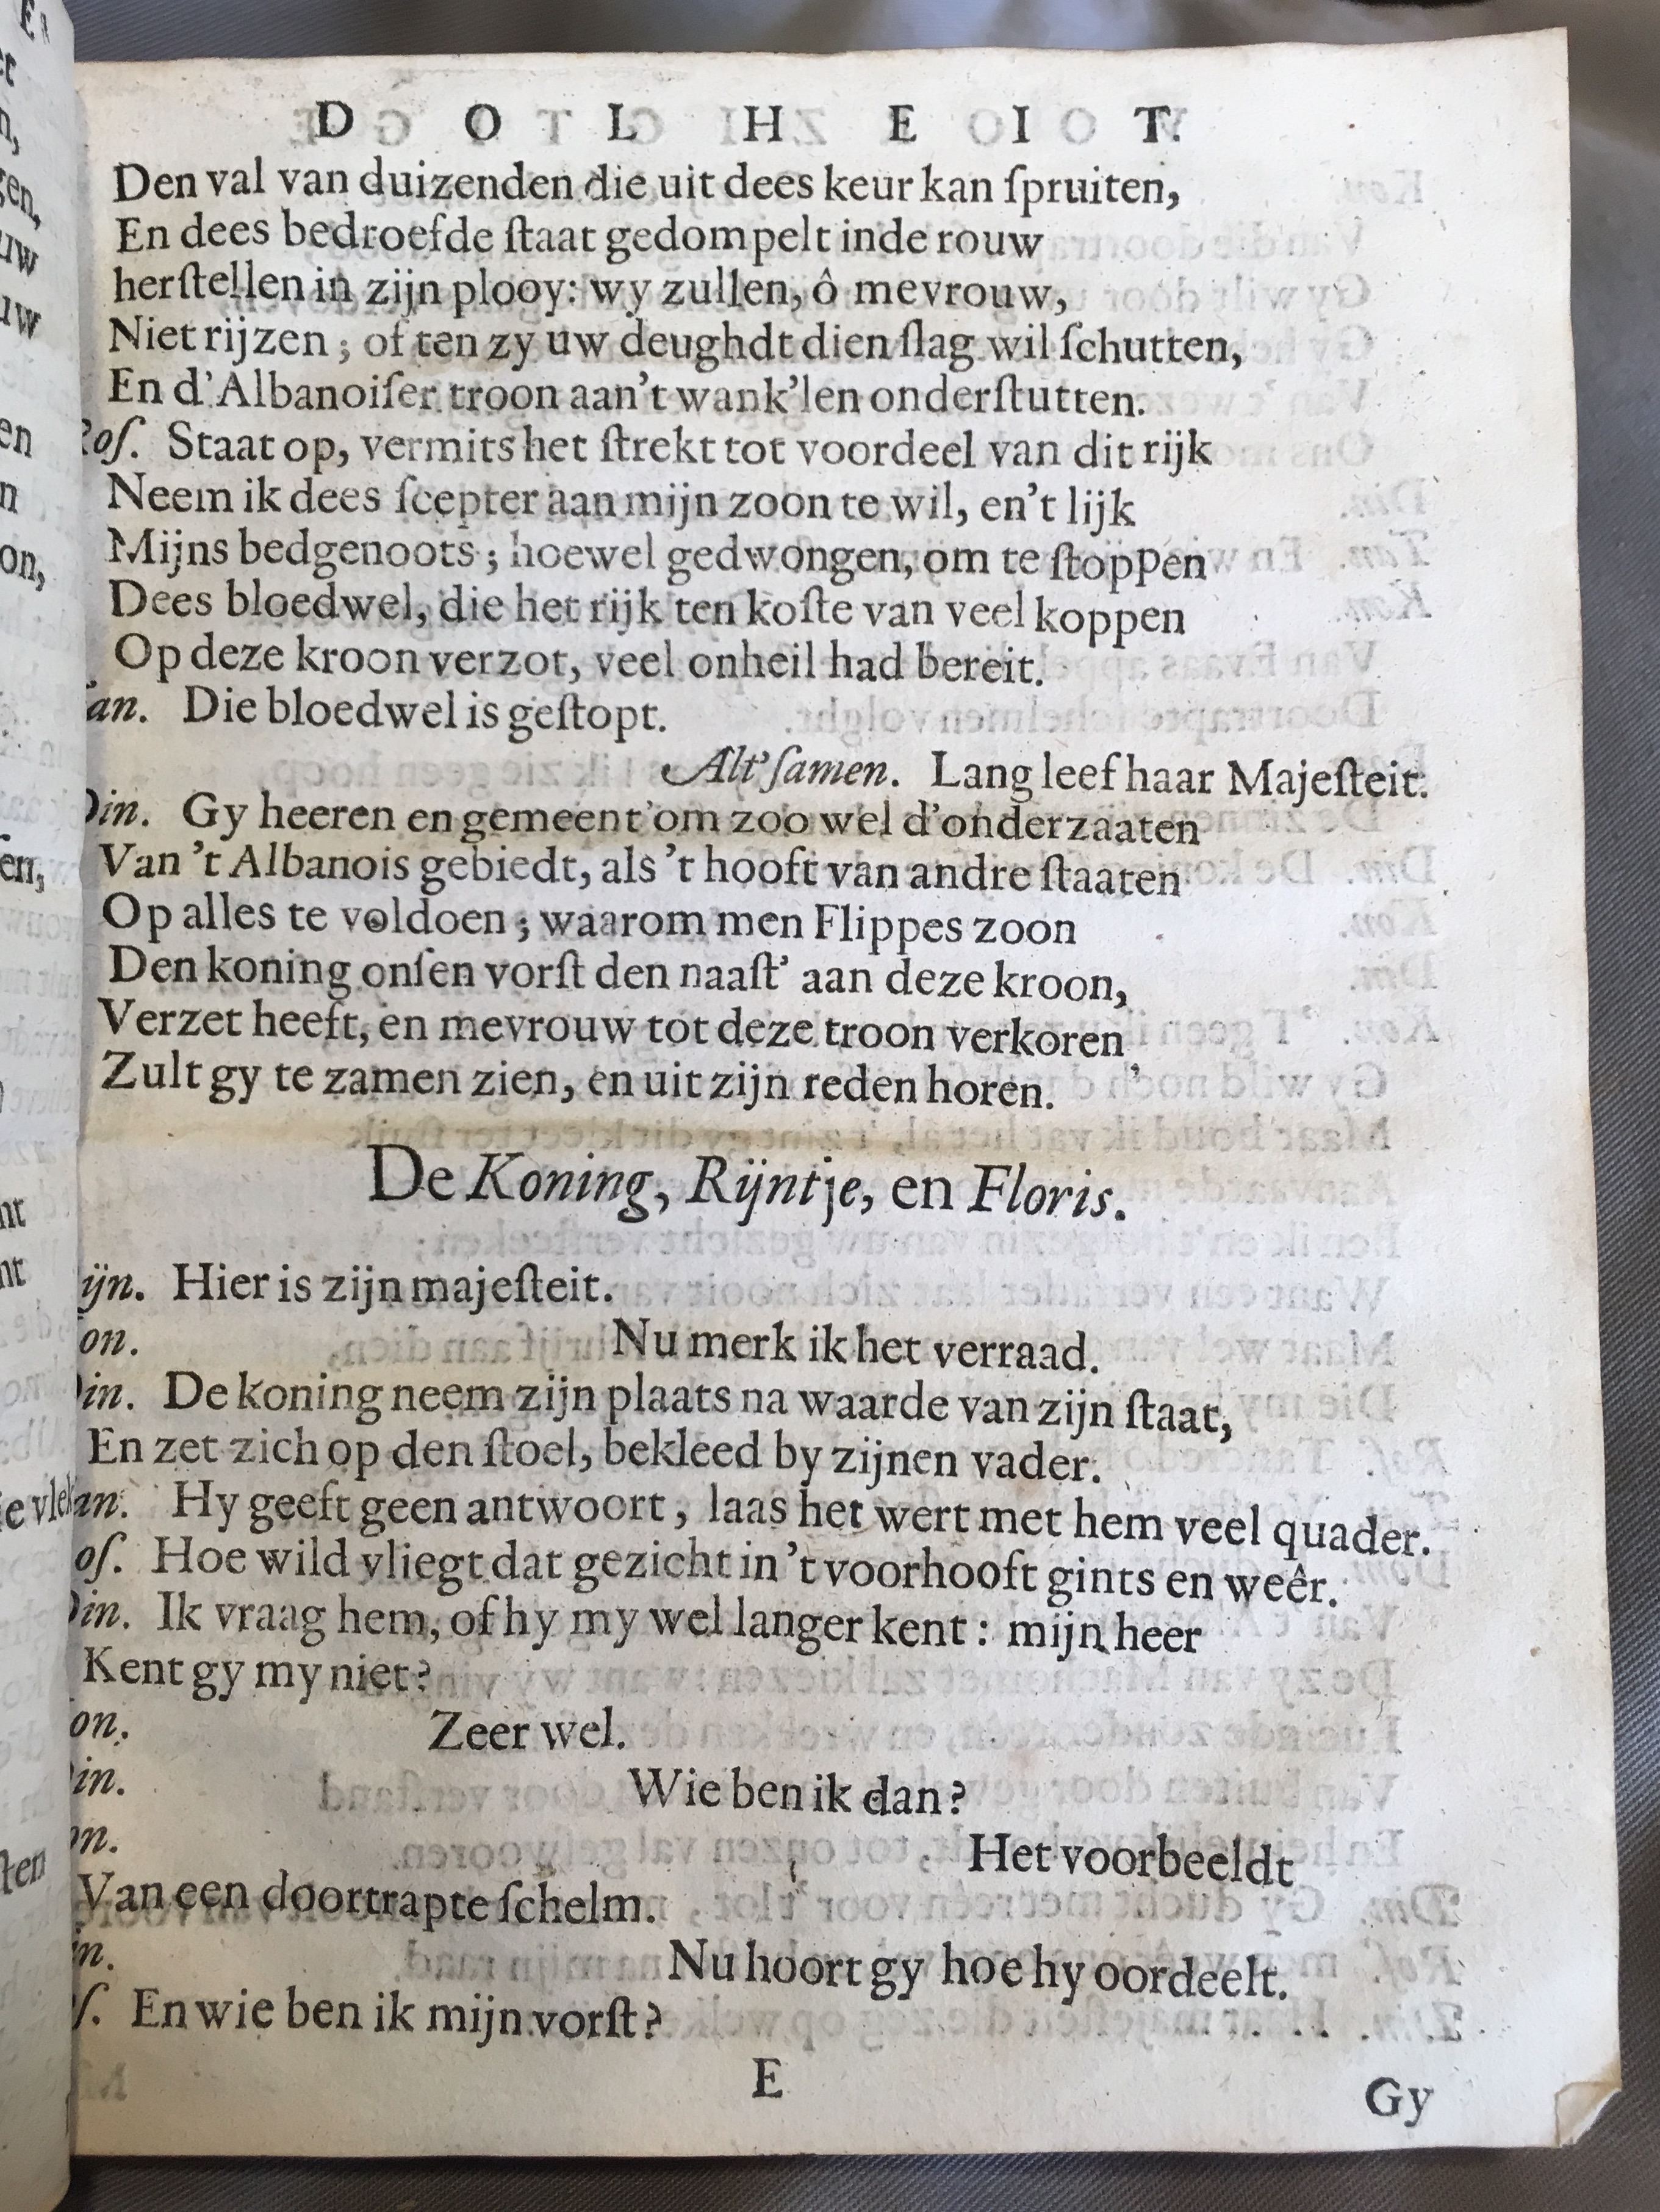 DOLHEIT.
Den val van duizenden die uit dees keur kan ſpruiten,
En dees bedroefde ſtaat gedompelt inde rouw
herſtellen in zijn plooy: wy zullen, ô mevrouw,
Niet rijzen; of ten zy uw deughdt dien ſlag wil ſchutten,
En d'Albanoiſer troon aan't wank'len onderſtutten.
Roſ. Staat op, vermits het ſtrekt tot voordeel van dit rijk
Neem ik dees ſcepter aan mijn zoon te wil, en't lijk
Mijns bedgenoots; hoewel gedwongen, om te ſtoppen
Dees bloedwel, die het rijk ten koſte van veel koppen
Op deze kroon verzot, veel onheil had bereit.
an. Die bloedwel is geſtopt.
Alt'ſamen. Lang leef haar Majeſteit.
Din. Gy heeren en gemeent' om zoo wel d'onderzaaten
Van 't Albanois gebiedt, als 't hooft van andre ſtaaten
Op alles te voldoen; waarom men Flippes zoon
Den koning onſen vorſt den naaſt' aan deze kroon,
Verzet heeft, en mevrouw tot deze troon verkoren,
Zult gy te zamen zien, en uit zijn reden horen.
De Koning, Rijntje, en Floris.
ijn. Hier is zijn majeſteit.
on. Nu merk ik het verraad.
Din. De koning neem zijn plaats na waarde van zijn ſtaat,
En zet zich op den ſtoel, bekleed by zijnen vader.
an. Hy geeft geen antwoort, laas het wert met hem veel quader.
oſ. Hoe wild vliegt dat gezicht in 't voorhooft gints en weêr.
Din. Ik vraag hem, of hy my wel langer kent: mijn heer
Kent gy my niet?
on. Zeer wel.
in. Wie ben ik dan?
on. Het voorbeeldt
Van een doortrapte ſchelm.
in. Nu hoort gy hoe hy oordeelt.
ſ. En wie ben ik mijn vorſt?
E
Gy